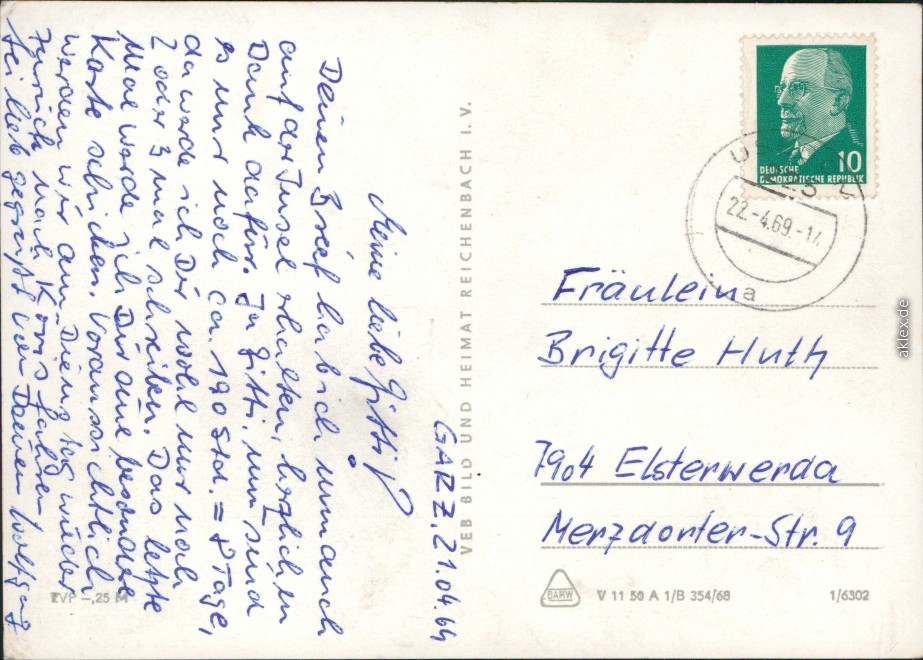 GARZ. 21.04.69
Meine liebe Gitti!
Deinen Brief hab ich nun auch
auf der Insel erhalten, herzlichen
Dank dafür. Ja Gitti, nun sind
es nur noch ca 190 Std. = 8 Tage,
da werde ich Dir wohl nur noch
2 oder 3 mal schreiben. Das letzte
Mal werde ich Dir eine besondere
Karte schicken. Voraussichtlich
werden wir am Dienstag wieder
zurück nach fahren
Sei lieb gegrüßt von Deinen Wolfgang
EVP -,25 M
VEB BILD UND HEIMAT REICHENBACH I. V.
10
DEUTSCHE
DEMOKRATISCHE REPUBLIK
22.-4.69.-17
a
Fräulein
Brigitte Huth
7904 Elsterwerda
Merzdorfer-Str. 9
BARW
V 11 50 A 1/B 354/68
1/6302
aklex.de